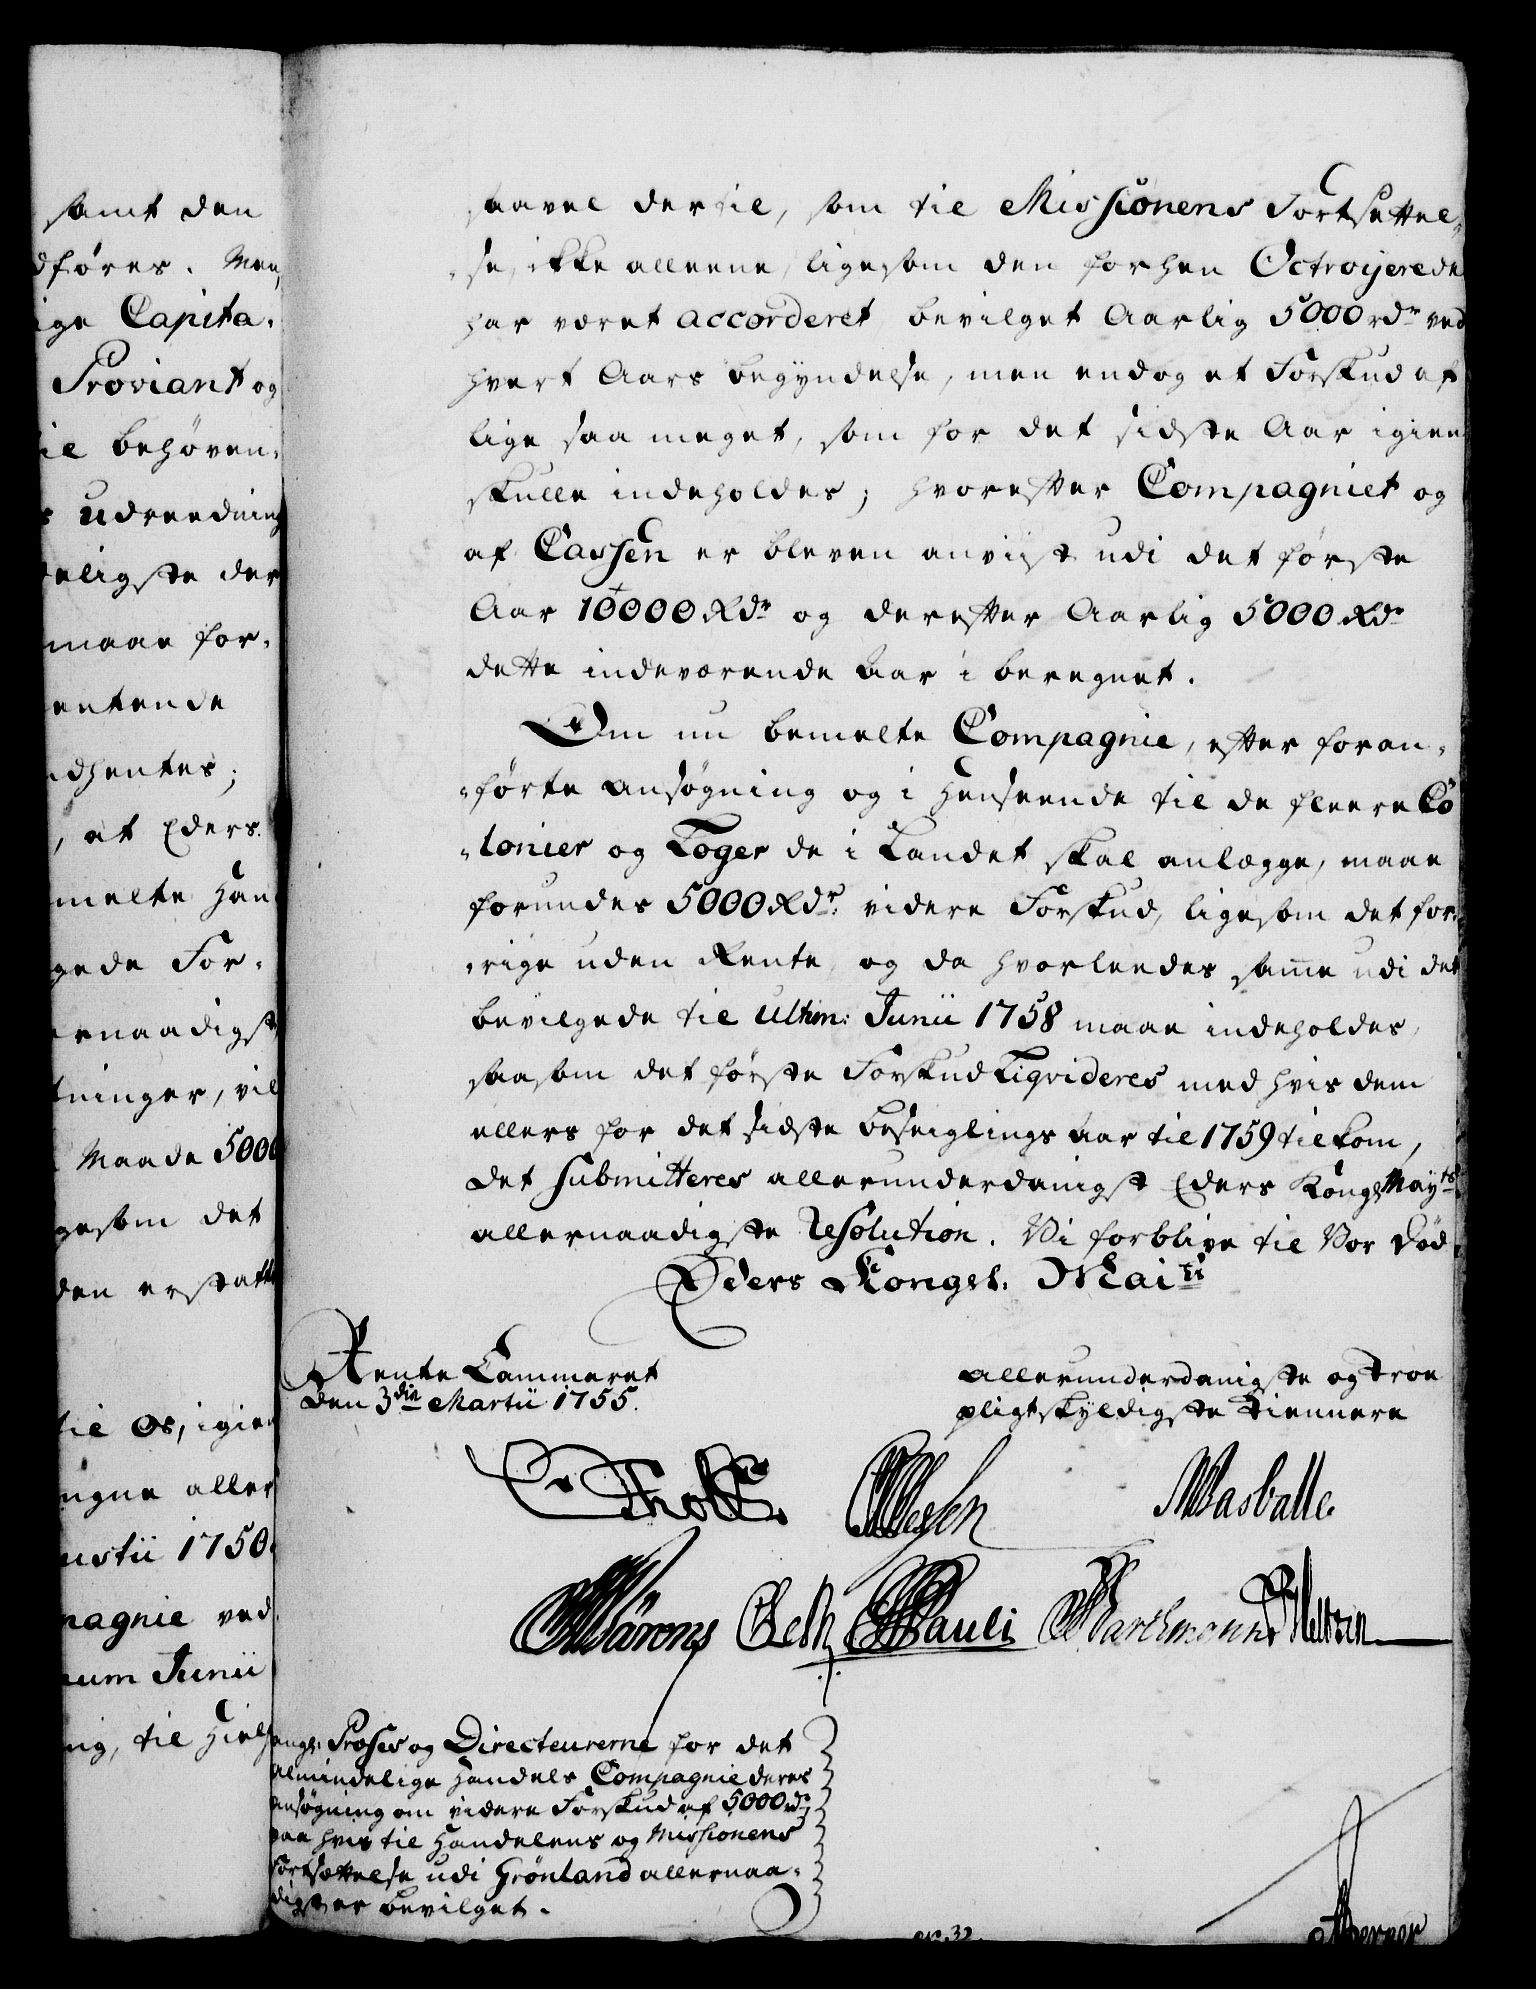 samt den
dføres. Men,
ige Capita-
Proviant og
til behøven-
s udreedning
deligste der
maae for-
entende
dhentes;
, at Eders
melte Han
gede For-
ernaadigst
tninger, vil
Maade 5000
gesom det
den erstatte
til Os, igien
egne aller
ustii 1750.
pagnie ved
num Junii
ng, til Hielp
saavel dertil, som til Missionens Fortsettel-
-se, ikke alleene, ligesom den forhen Octroyerede
har været accorderet, bevilget Aarlig 5000 rdr ved
hvert Aars begyndelse, men endog et Forskud af
lige saa meget, som for det sidste Aar igien
skulle indeholdes; hvorefter Compagniet og
af Cassen er bleven anviist udi det første
Aar 10000 Rdr og derefter Aarlig 5000 Rdr
dette indeværende Aar i beregnet.
Om nu bemelte Compagnie, efter foran-
-førte Ansøgning og i Henseende til de fleere Co
-lonier og Loger de i Landet skal anlægge, maae
forundes 5000 Rdr. videre Forskud, ligesom det for-
-rige uden Rente, og da hvorleedes samme udi det
bevilgede til Ultim: Junii 1758 maae indeholdes,
saasom det første Forskud Liqvideres med hvis dem
ellers for det sidste Beseiglings Aar til 1759 tilkom,
Det submitteres allerunderdanigst Eders Kongl. Mayts
allernaadigste Resolution. Vi forblive til Vor Død
Eders Kongel. Maits
Rente Cammeret
den 3die Martii 1755.
allerunderdanigste og troe
pligtskyldigste Tiennere
Holt
Masballe
Pauli Barthmann
ongl. Præses og Directeurerne for det
almindelige Handels Compagnie deres
ansøgning om videre Forskud af 5000 rdr
paa hvis til Handelens og Missionens
Fortsættelse udi Grönland allernaa-
digst er bevilget.
No. 32.